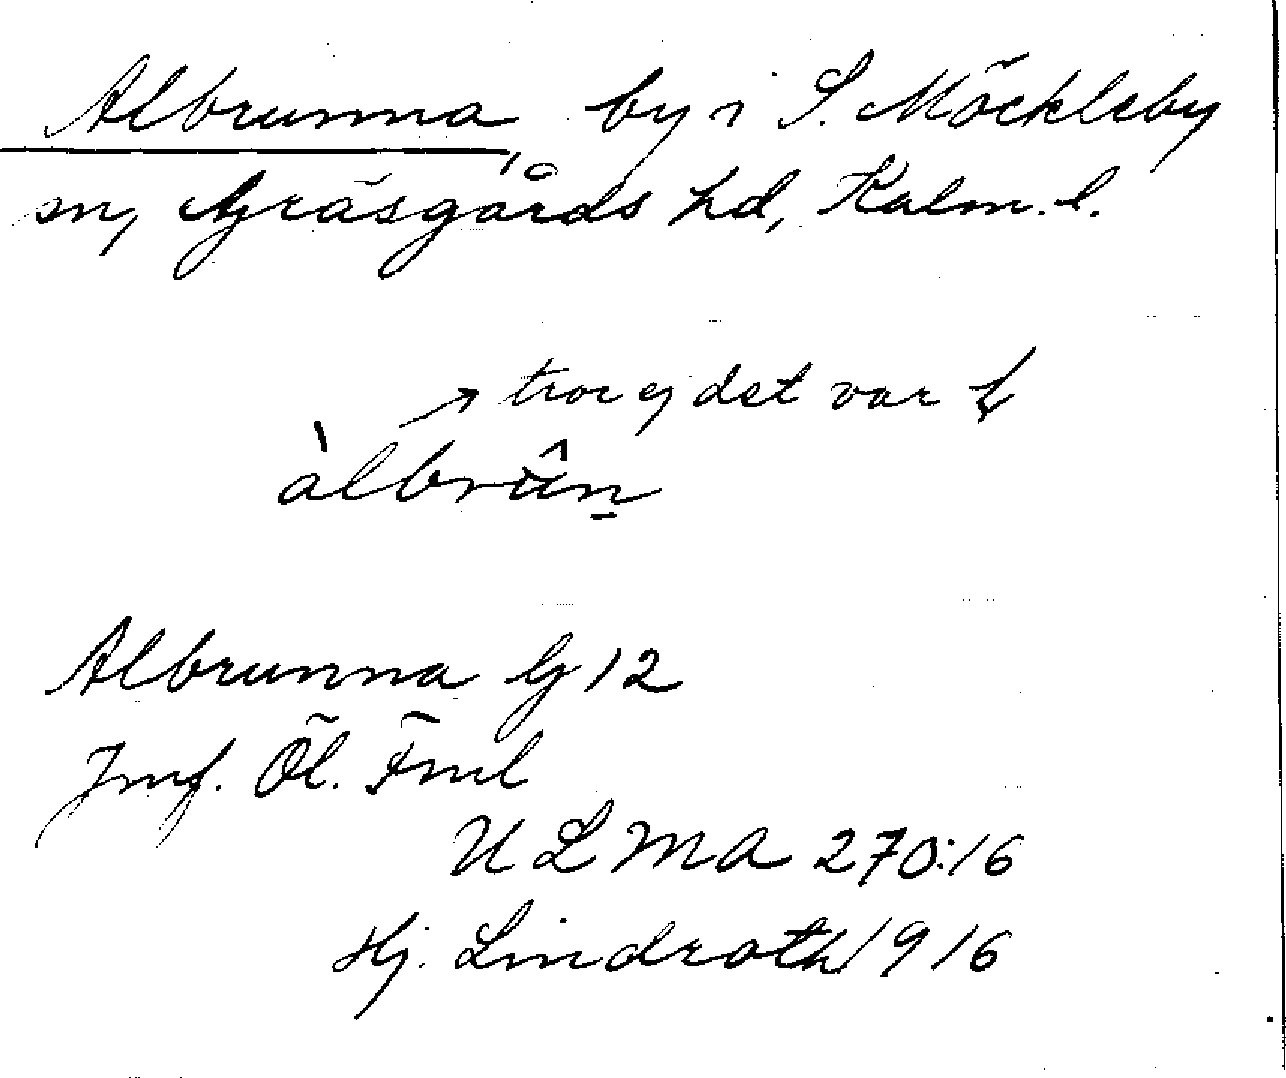 Albrunna, by i S. Möckleby
sn, Gräsgårds hd, Kalm. l.
→ tror ej det var
àlbrûn̠
Albrunna G 12
Jmf. Öl. Fml
ULMA 270:16
Hj. Lindroth 1916